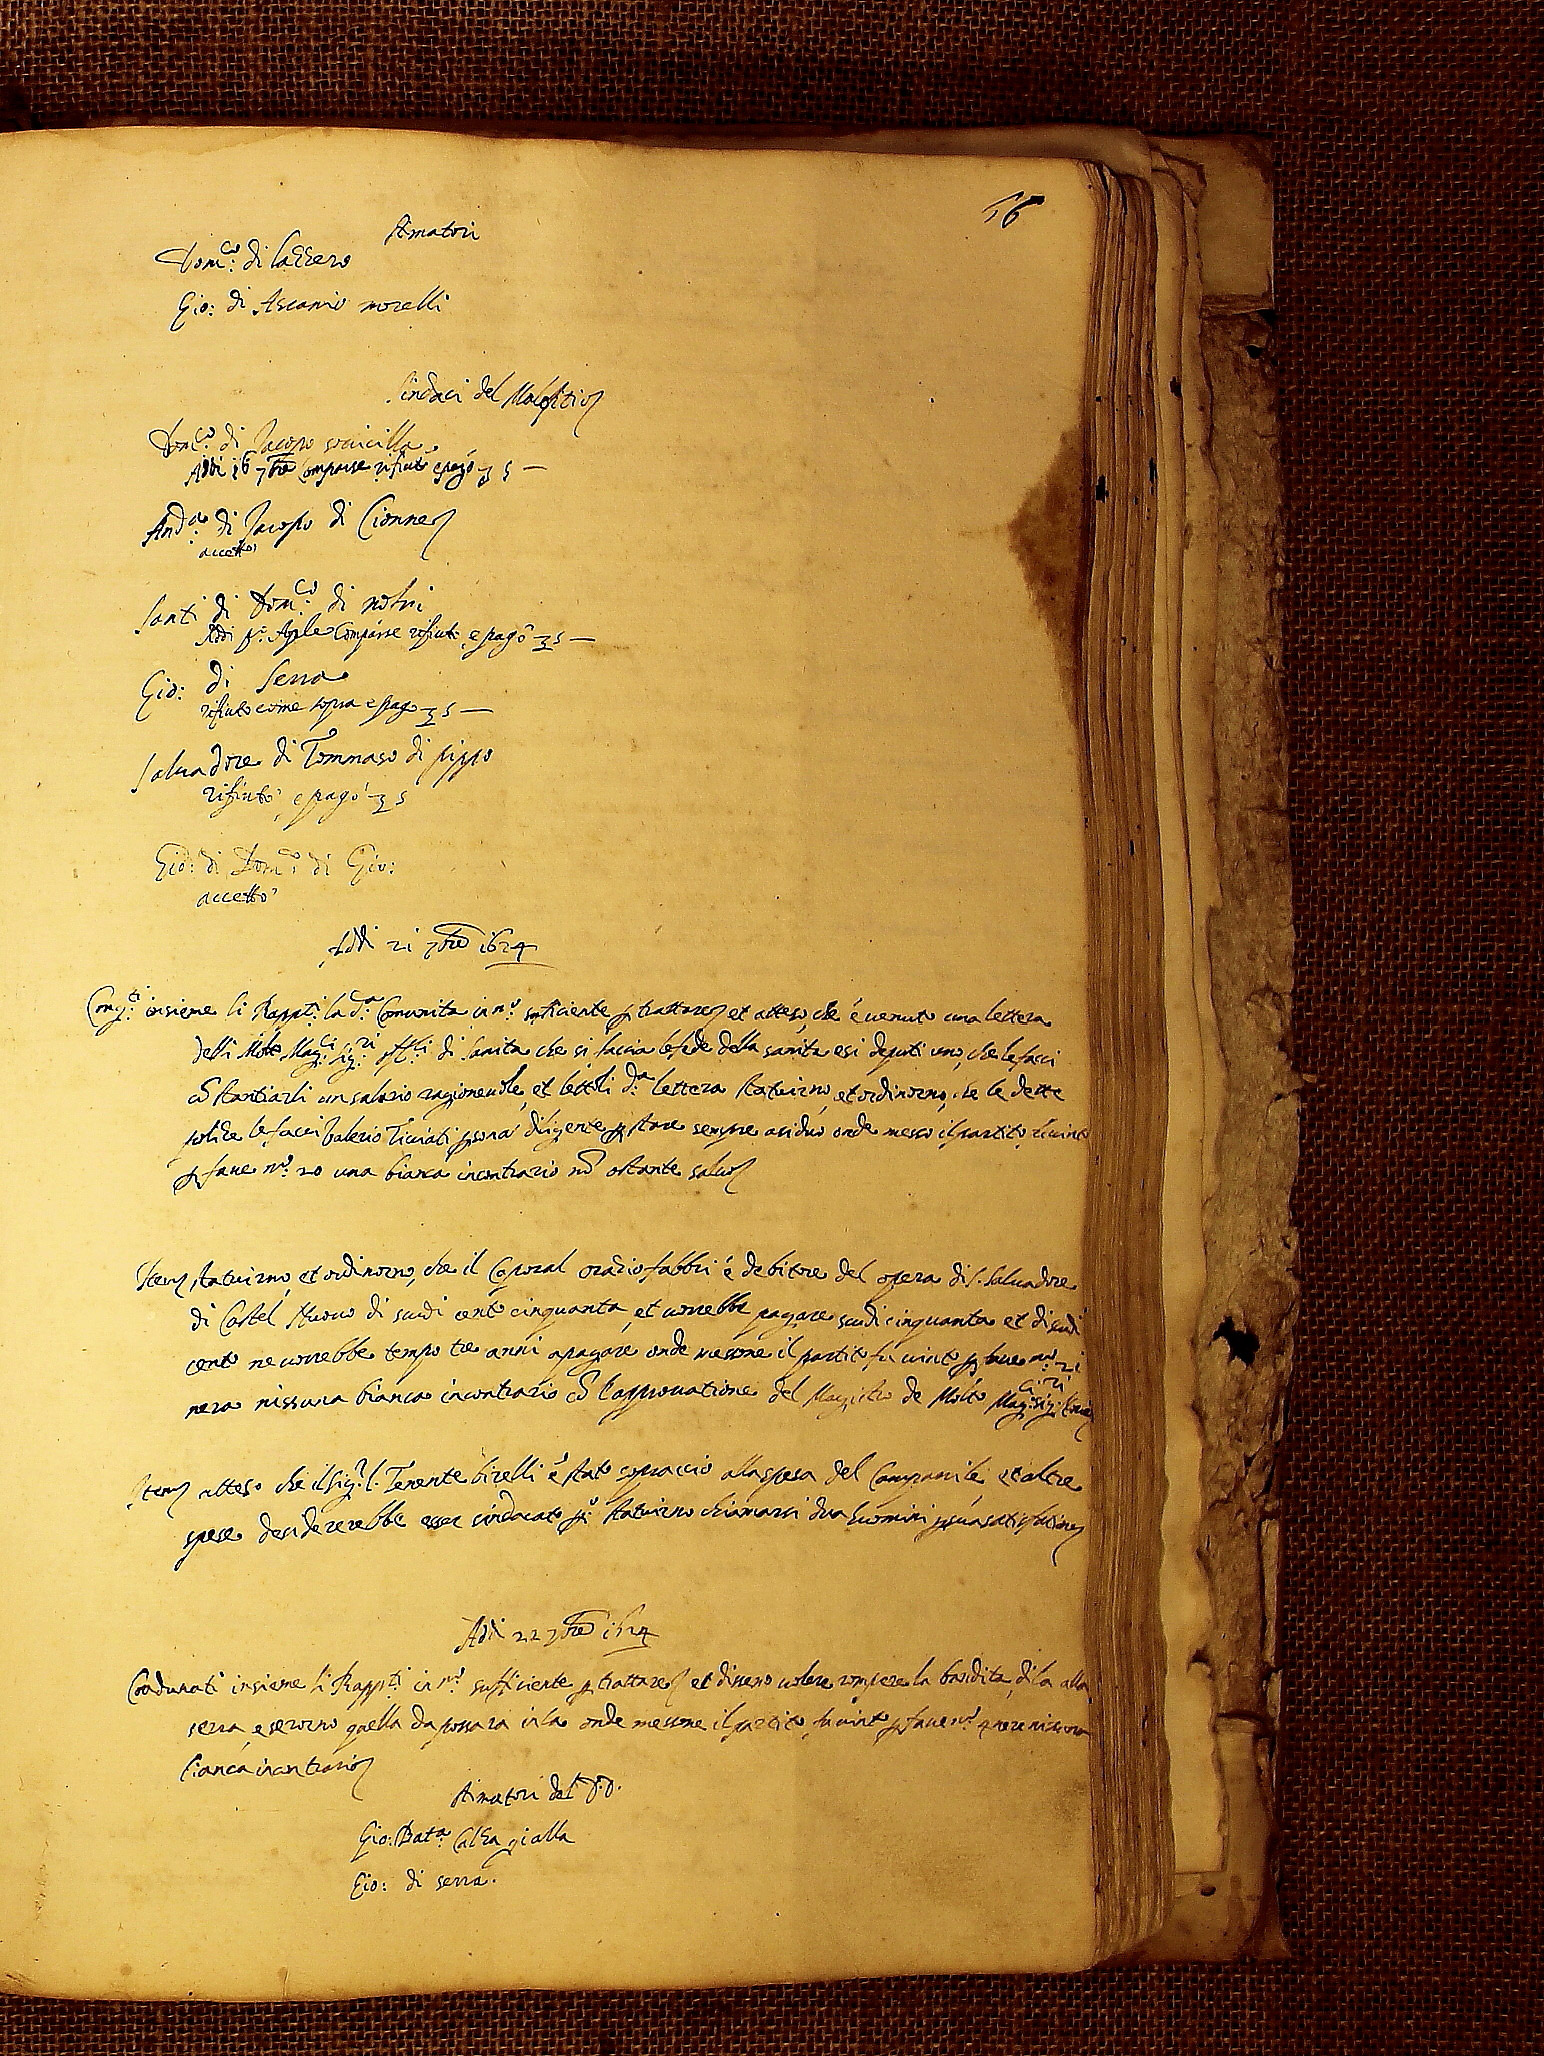 56
Amatori
Dom.co di lazzero
Gio: di Ascanio morelli
Sindaci del Malefitio
Dom.co di Jacopo
Addi 16 7bre comparse rifiutò e pagò 5 —
And.a di Jacopo di Cionne
accettò
Santi di Dom.co di nofri
Addi p.o Aprile Comparse rifiutò e pagò 5 —
Gio: di Serra
rifiuto come sopra e pago 5 —
Salvadore di Tommaso di pippo
rifiutò e pagò 5
Gio: di Dom.co di Gio:
accettò
Addi 21 7bre 1624
Cong.ti insieme li Rapp.ti la d.a Comunita in n.o suficiente p trattare et atteso che è venuto una lettera
delli Molto Mag.ci sig.ri off.li di Sanita che si faccia le fede della sanita e si deputi uno, che le facci
cō stantiarli un salario ragionevole, et lettoli d.a lettera statuirno, et ordinorno, che le dette
polize le facci Valerio Ticciati psona diligente p stare sempre asiduo onde messo il partito fu vinto
p fave n.o 20 una bianca incontrario nō ostante salvo
Item statuirno, et ordinorno, che il Caporal oratio fabbri è debitore del opera di S. Salvadore
di Castel Nuovo di scudi cento cinquanta, et vorrebbe pagare scudi cinquanta et di scudi
cento ne vorrebbe tempo tre anni a pagare onde messone il partito fu vinto p fave n.o 21
nera nissuna bianca incontrario cō l'approvatione del Magistro de Molto Mag.ci sig.ri
Item atteso che il Sig.r l. Tenente birelli è stato sopraccio alla spesa del Campanile et altre
spese desidererebbe esser sindacato p.o statuirno chiamarsi dua huomini p sua satisfatione
Adi 22 7bre 1624
Coadunati insieme li Rapp.ti in n.o sufficiente p trattare et dissero volere rompere la bandita di la alla
serra, e serorno quella da in la onde messone il partito fu vinto p fave n.o nere nissuna
bianca incontrario
Aimatori del d.o
Gio: Bat.a Calza gialla
Gio: di serra.